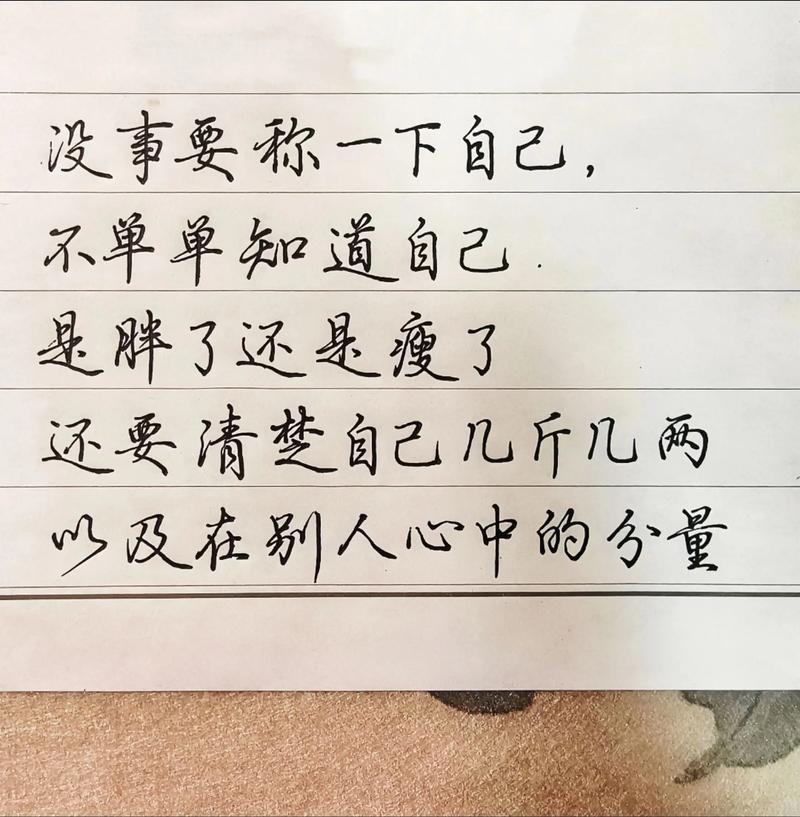 没事要称一下自己，
不单单知道自己.
是胖了还是瘦了
还要清楚自己几斤几两
以及在别人心中的分量